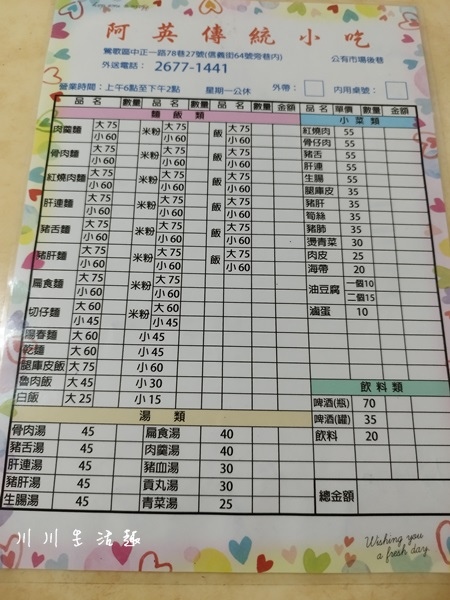 阿英傳統小吃
鶯歌區中正一路78巷27號(信義街64號旁巷內)
外送電話： 2677-1441
公有市場後巷
營業時間：上午6點至下午2點 星期一公休 外帶： 內用桌號：
品名 數量 品名 數量 品名 數量 金額 品名 單價 數量 金額
麵飯類
肉羹麵 大75 小60 米粉 大75 小60 飯 大75 小60
骨肉麵 大75 小60 米粉 大75 小60 飯 大75 小60
紅燒肉麵 大75 小60 米粉 大75 小60 飯 大75 小60
肝連麵 大75 小60 米粉 大75 小60 飯 大75 小60
豬舌麵 大75 小60 米粉 大75 小60 飯 大75 小60
豬肝麵 大75 小60 米粉 大75 小60 飯 大75 小60
扁食麵 大75 小60 米粉 大75 小60
切仔麵 大60 小45 米粉 大60 小45
陽春麵 大60 小45
乾麵 大60 小45
腿庫皮飯 大75 小60
魯肉飯 大45 小30
白飯 大25 小15
小菜類
紅燒肉 55
骨仔肉 55
豬舌 55
肝連 55
生腸 55
腿庫皮 35
豬肝 35
筍絲 35
豬肺 35
燙青菜 30
肉皮 25
海帶 20
油豆腐 一個10 二個15
滷蛋 10
飲料類
啤酒(瓶) 70
啤酒(罐) 35
飲料 20
湯類
骨肉湯 45 扁食湯 40
豬舌湯 45 肉羹湯 40
肝連湯 45 豬血湯 30
豬肝湯 45 貢丸湯 30
生腸湯 45 青菜湯 25
總金額
川川生活趣
Wishing you
a fresh day